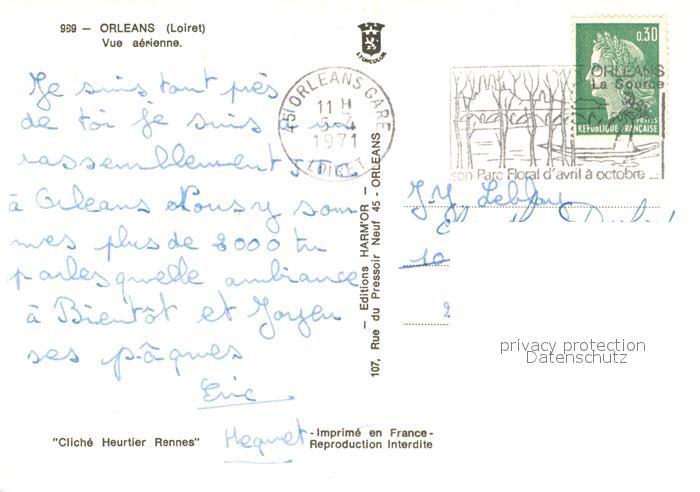 989 - ORLEANS (Loiret)
Vue aérienne.
LYONCOLOR
Je suis tout près
de toi je suis
rassemblement
à Orleans Nous y som
mes plus de 3000 tu
parles quelle ambiance
à Bientôt et Joyeu
ses pâques
Eric
Hequet
"Cliché Heurtier Rennes"
- Imprimé en France -
Reproduction Interdite
107, Rue du Pressoir Neuf 45 - ORLEANS
— Editions HARM'OR —
45 ORLEANS GARE
11 H
5-4
1971
LOIRET
0,30
POSTES
REPUBLIQUE FRANÇAISE
ORLEANS
La Source
son Parc Floral d'avril à octobre
J-Y Leblay
10
privacy protection
Datenschutz